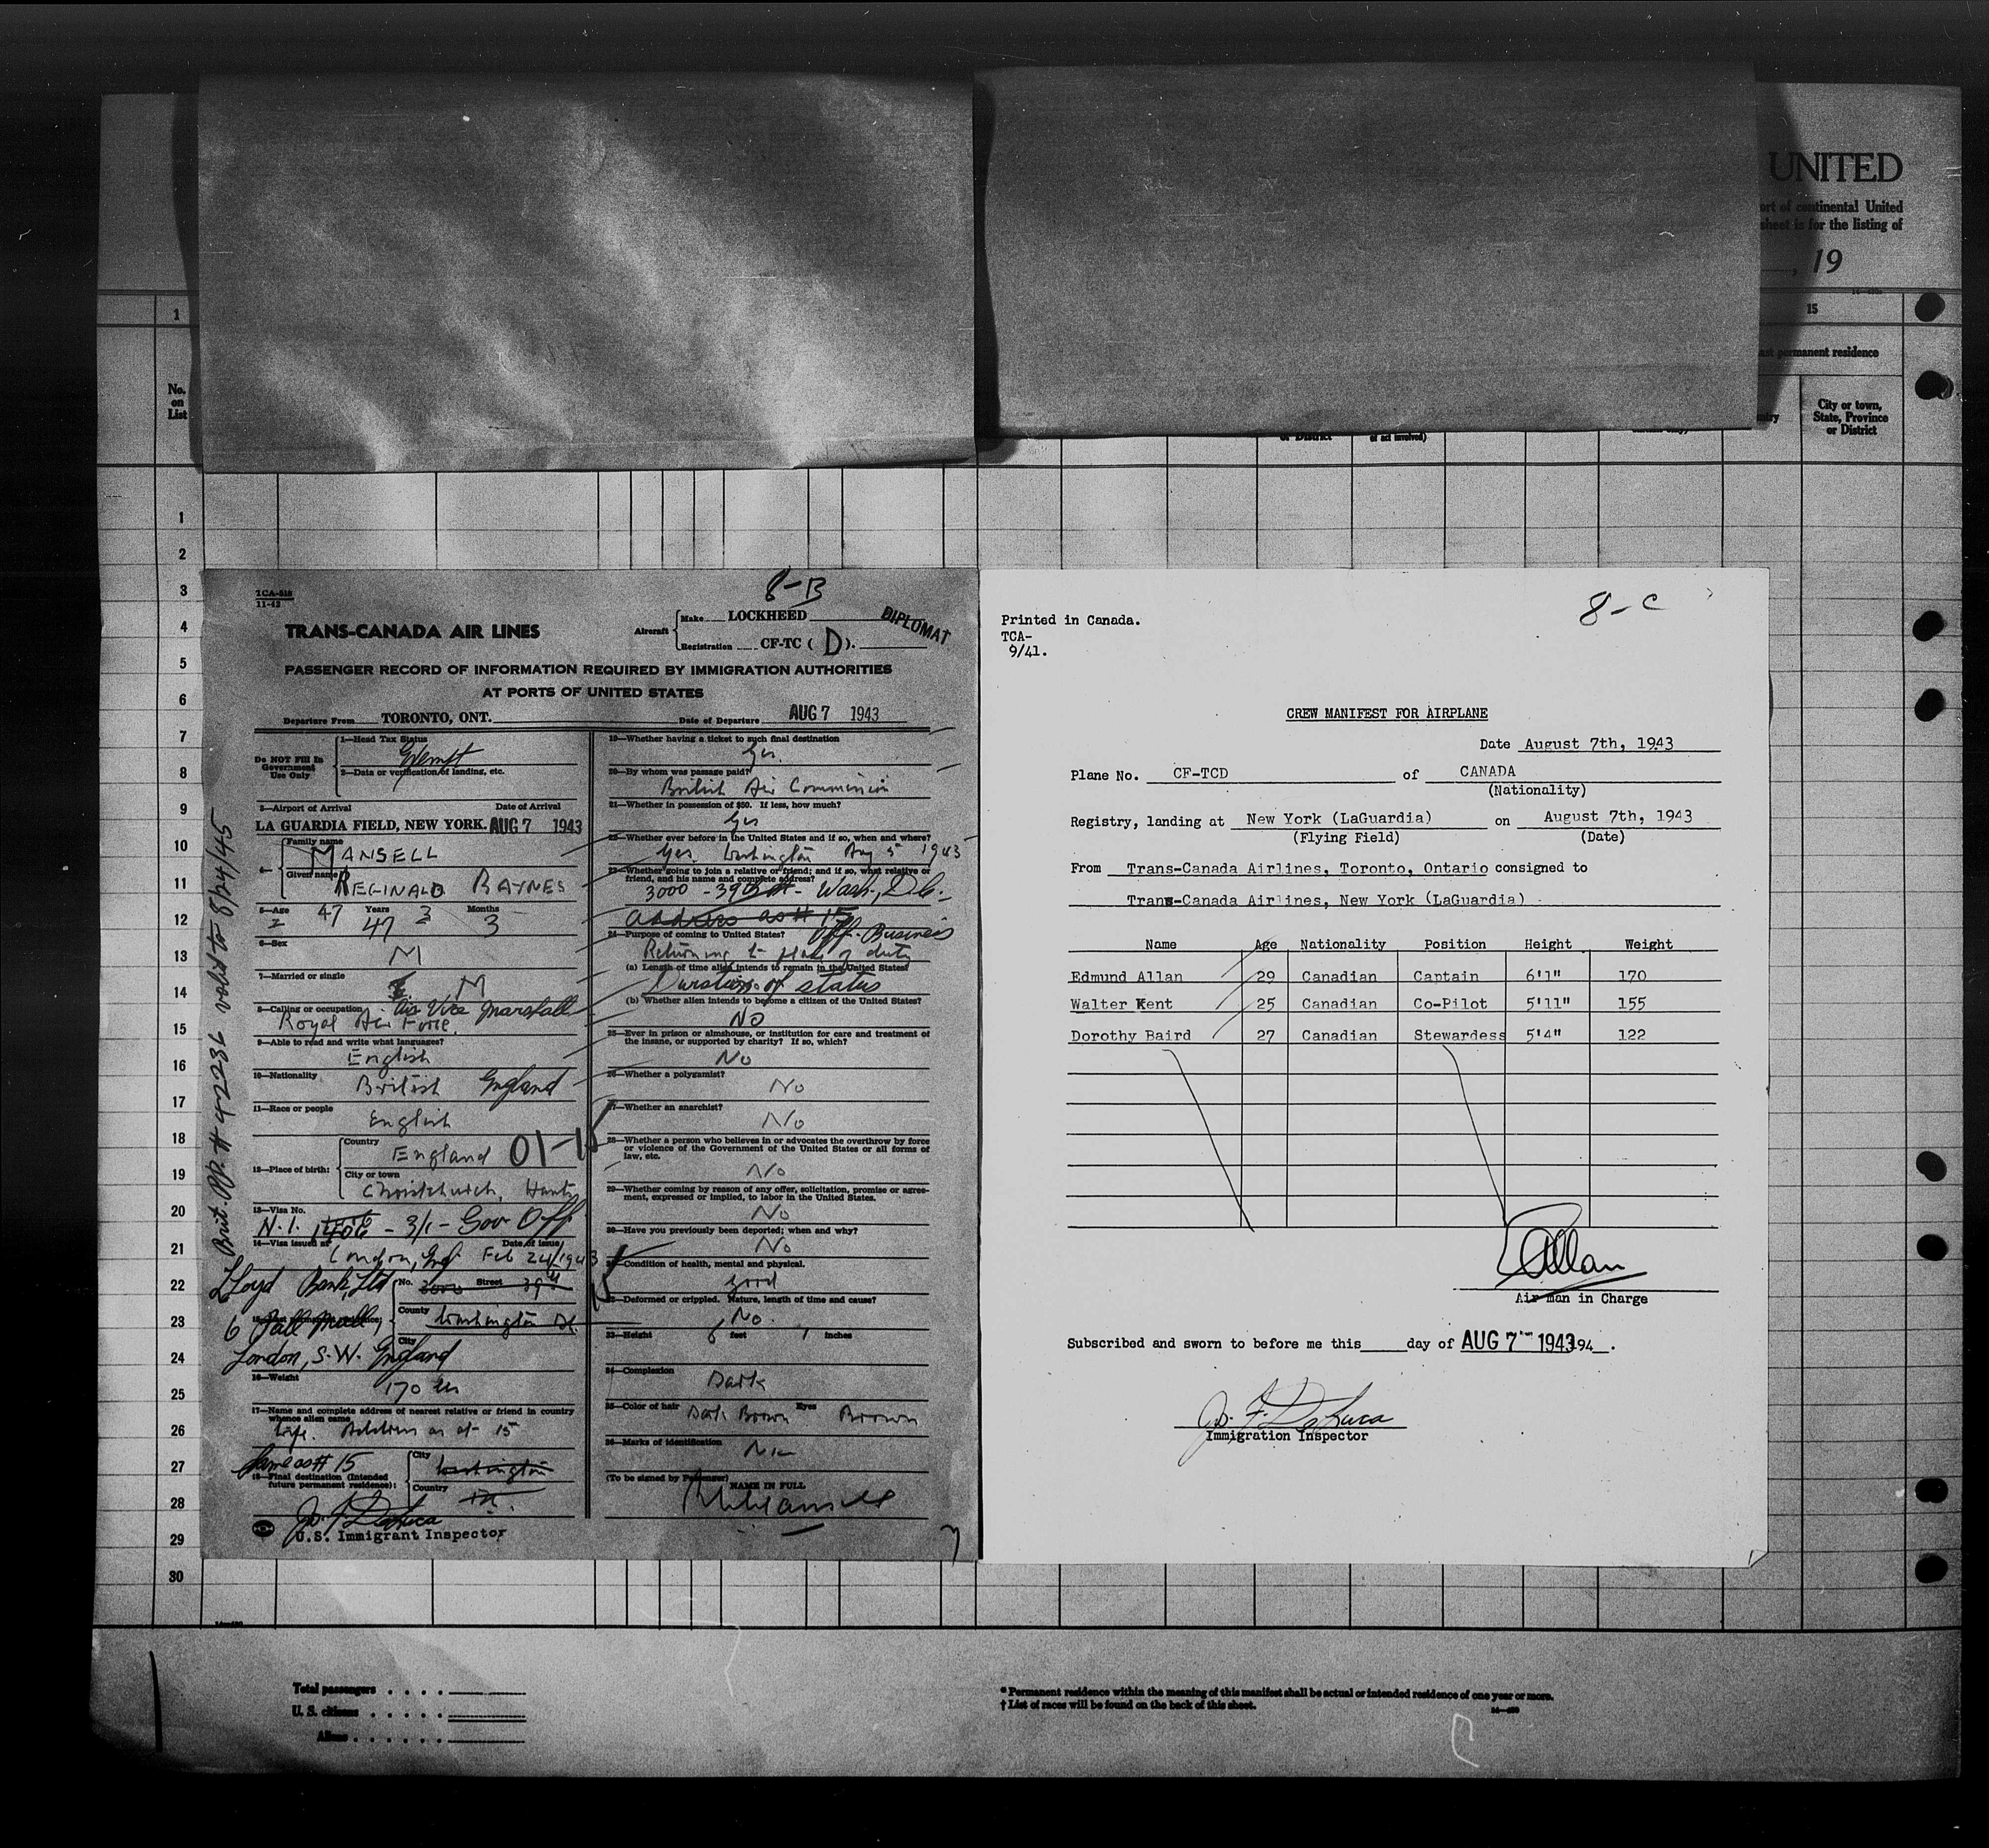 UNITED
ort of continental United
sheet is for the listing of
, 19
1
15
permanent residence
No.
on
List
City or town,
State, Province
or District
or District
of act involved)
1
2
3
4
5
6
7
8
9
10
11
12
13
14
15
16
17
18
19
20
21
22
23
24
25
26
27
28
29
30
Brit. PP. # 42236 valid to 8/24/45
8-B
TCA-518
11-42
TRANS-CANADA AIR LINES
Aircraft
Make LOCKHEED
Registration CF-TC ( D ).
DIPLOMAT
PASSENGER RECORD OF INFORMATION REQUIRED BY IMMIGRATION AUTHORITIES
AT PORTS OF UNITED STATES
Departure From TORONTO, ONT. Date of Departure AUG 7 1943
Do NOT Fill In
Government
Use Only
1—Head Tax Status
Exempt
2—Data or verification of landing, etc.
3—Airport of Arrival Date of Arrival
LA GUARDIA FIELD, NEW YORK. AUG 7 1943
Family name
MANSELL
Given name
REGINALD BAYNES
5—Age 47 Years 3 Months
47 3
6—Sex
M
7—Married or single
M
8—Calling or occupation Air Vice Marshall
Royal Air Force.
9—Able to read and write what languages?
English
10—Nationality
British England
11—Race or people
English
12—Place of birth:
Country
England
City or town
Christchurch, Hants
13—Visa No.
N.I. 1406 - 3/1 - Gov Off
14—Visa issued at Date of issue
London, Eng Feb 24/1943
Lloyd Bank, Ltd
6 Pall Mall,
London, S.W. England
No. 3000 Street 39th
County Washington DC
City
16—Weight
170 lbs
17—Name and complete address of nearest relative or friend in country
whence alien came
Wife. Address as at 15
Same as # 15
18—Final destination (Intended
future permanent residence):
City
Washington
Country
Jos. F. DeLuca
U.S. Immigrant Inspector
19—Whether having a ticket to such final destination
Yes.
20—By whom was passage paid?
British Air Commission
21—Whether in possession of $50. If less, how much?
Yes
22—Whether ever before in the United States and if so, when and where?
Yes. Washington Aug 5 1943
23—Whether going to join a relative or friend; and if so, what relative or
friend, and his name and complete address?
3000 - 39th St - Wash., D.C.
Address as # 15
24—Purpose of coming to United States? Off. Business
Returning to place of duty
(a) Length of time alien intends to remain in the United States?
Duration of status
(b) Whether alien intends to become a citizen of the United States?
NO
25—Ever in prison or almshouse, or institution for care and treatment of
the insane, or supported by charity? If so, which?
No
26—Whether a polygamist?
No
27—Whether an anarchist?
No
28—Whether a person who believes in or advocates the overthrow by force
or violence of the Government of the United States or all forms of
law, etc.
No
29—Whether coming by reason of any offer, solicitation, promise or agree-
ment, expressed or implied, to labor in the United States.
No
30—Have you previously been deported; when and why?
No
31—Condition of health, mental and physical.
Good
32—Deformed or crippled. Nature, length of time and cause?
No.
33—Height 6 feet 1 inches
34—Complexion
Dark
35—Color of hair Dark Brown Eyes Brown
36—Marks of identification
(To be signed by Passenger)
NAME IN FULL
RBMansell
8-C
Printed in Canada.
TCA-
9/41.
CREW MANIFEST FOR AIRPLANE
Date August 7th, 1943
Plane No. CF-TCD of CANADA
(Nationality)
Registry, landing at New York (LaGuardia) on August 7th, 1943
(Flying Field) (Date)
From Trans-Canada Airlines, Toronto, Ontario consigned to
Trans-Canada Airlines, New York (LaGuardia)
Name Age Nationality Position Height Weight
Edmund Allan 29 Canadian Captain 6'1" 170
Walter Kent 25 Canadian Co-Pilot 5'11" 155
Dorothy Baird 27 Canadian Stewardess 5'4" 122
EAllan
Airman in Charge
Subscribed and sworn to before me this day of AUG 7 1943 194 .
Jos. F. DeLuca
Immigration Inspector
Total passengers . . . .
U. S. citizens . . . . .
Aliens . . . . . .
* Permanent residence within the meaning of this manifest shall be actual or intended residence of one year or more.
† List of races will be found on the back of this sheet.